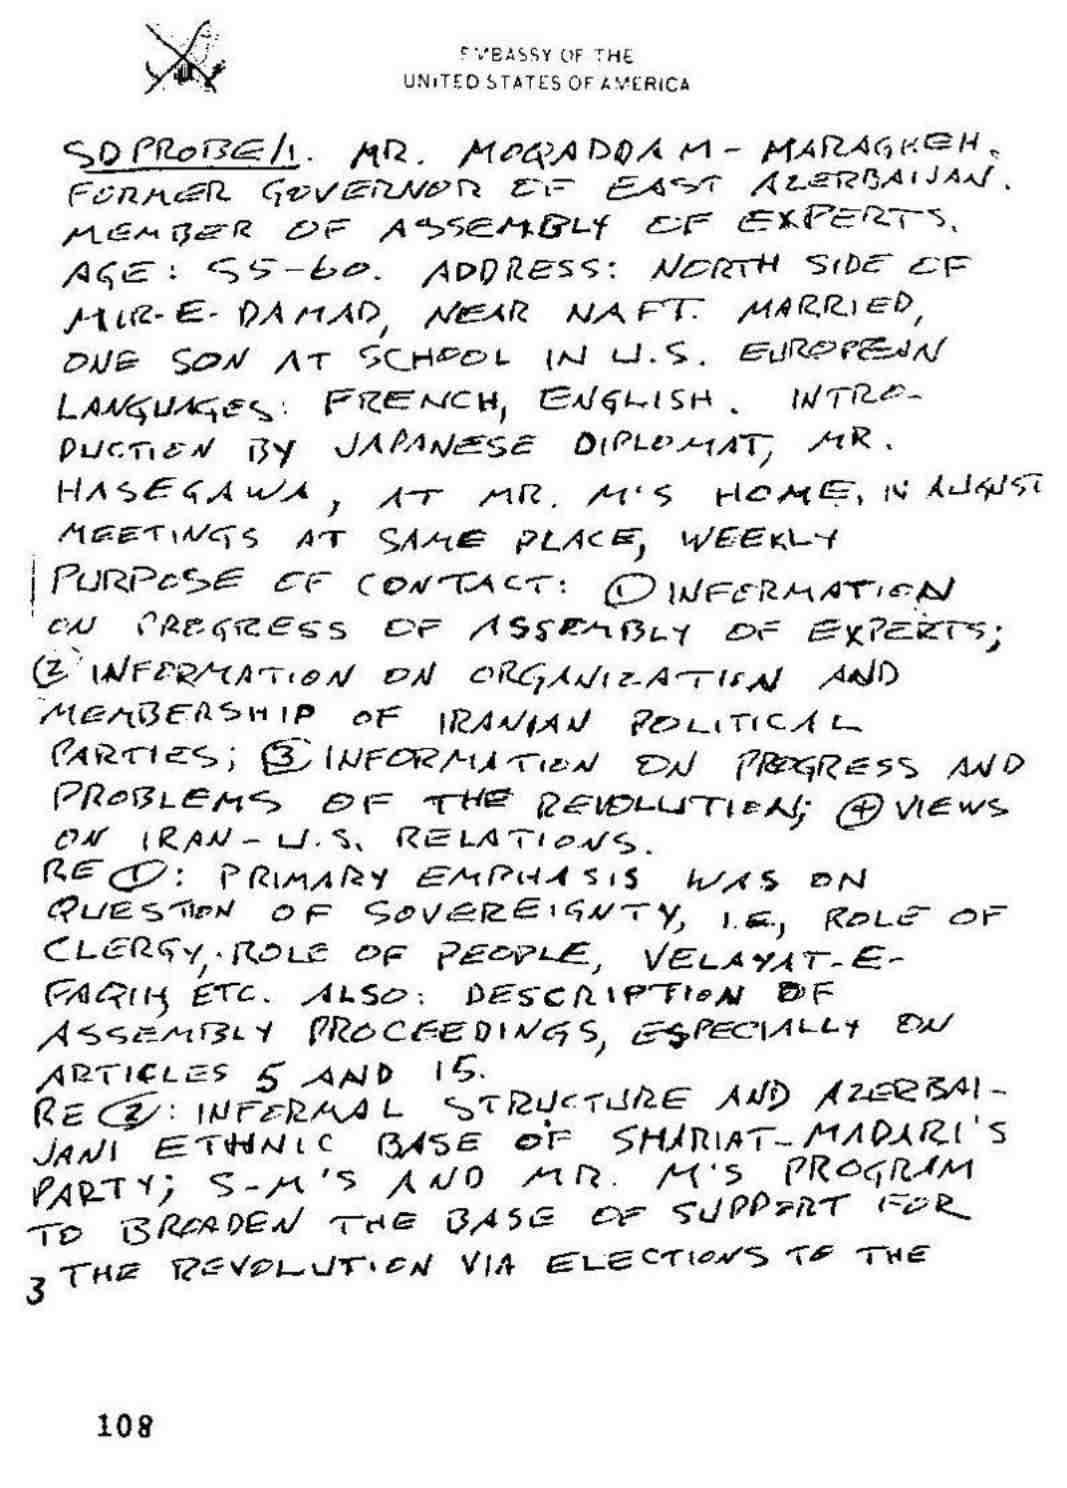 EMBASSY OF THE
UNITED STATES OF AMERICA
SDPROBE/1. MR. MOQADDAM-MARAGHEH.
FORMER GOVERNOR OF EAST AZERBAIJAN.
MEMBER OF ASSEMBLY OF EXPERTS.
AGE: 55-60. ADDRESS: NORTH SIDE OF
MIR-E-DAMAD, NEAR NAFT. MARRIED,
ONE SON AT SCHOOL IN U.S. EUROPEAN
LANGUAGES: FRENCH, ENGLISH. INTRO-
DUCTION BY JAPANESE DIPLOMAT, MR.
HASEGAWA, AT MR. M'S HOME, IN AUGUST
MEETINGS AT SAME PLACE, WEEKLY
PURPOSE OF CONTACT: ① INFORMATION
ON PROGRESS OF ASSEMBLY OF EXPERTS;
② INFORMATION ON ORGANIZATION AND
MEMBERSHIP OF IRANIAN POLITICAL
PARTIES; ③ INFORMATION ON PROGRESS AND
PROBLEMS OF THE REVOLUTION; ④ VIEWS
ON IRAN-U.S. RELATIONS.
RE ①: PRIMARY EMPHASIS WAS ON
QUESTION OF SOVEREIGNTY, I.E., ROLE OF
CLERGY, ROLE OF PEOPLE, VELAYAT-E-
FAQIH, ETC. ALSO: DESCRIPTION OF
ASSEMBLY PROCEEDINGS, ESPECIALLY ON
ARTICLES 5 AND 15.
RE ②: INFORMAL STRUCTURE AND AZERBAI-
JANI ETHNIC BASE OF SHARIAT-MADARI'S
PARTY; S-M'S AND MR. M'S PROGRAM
TO BROADEN THE BASE OF SUPPORT FOR
3 THE REVOLUTION VIA ELECTIONS TO THE
108